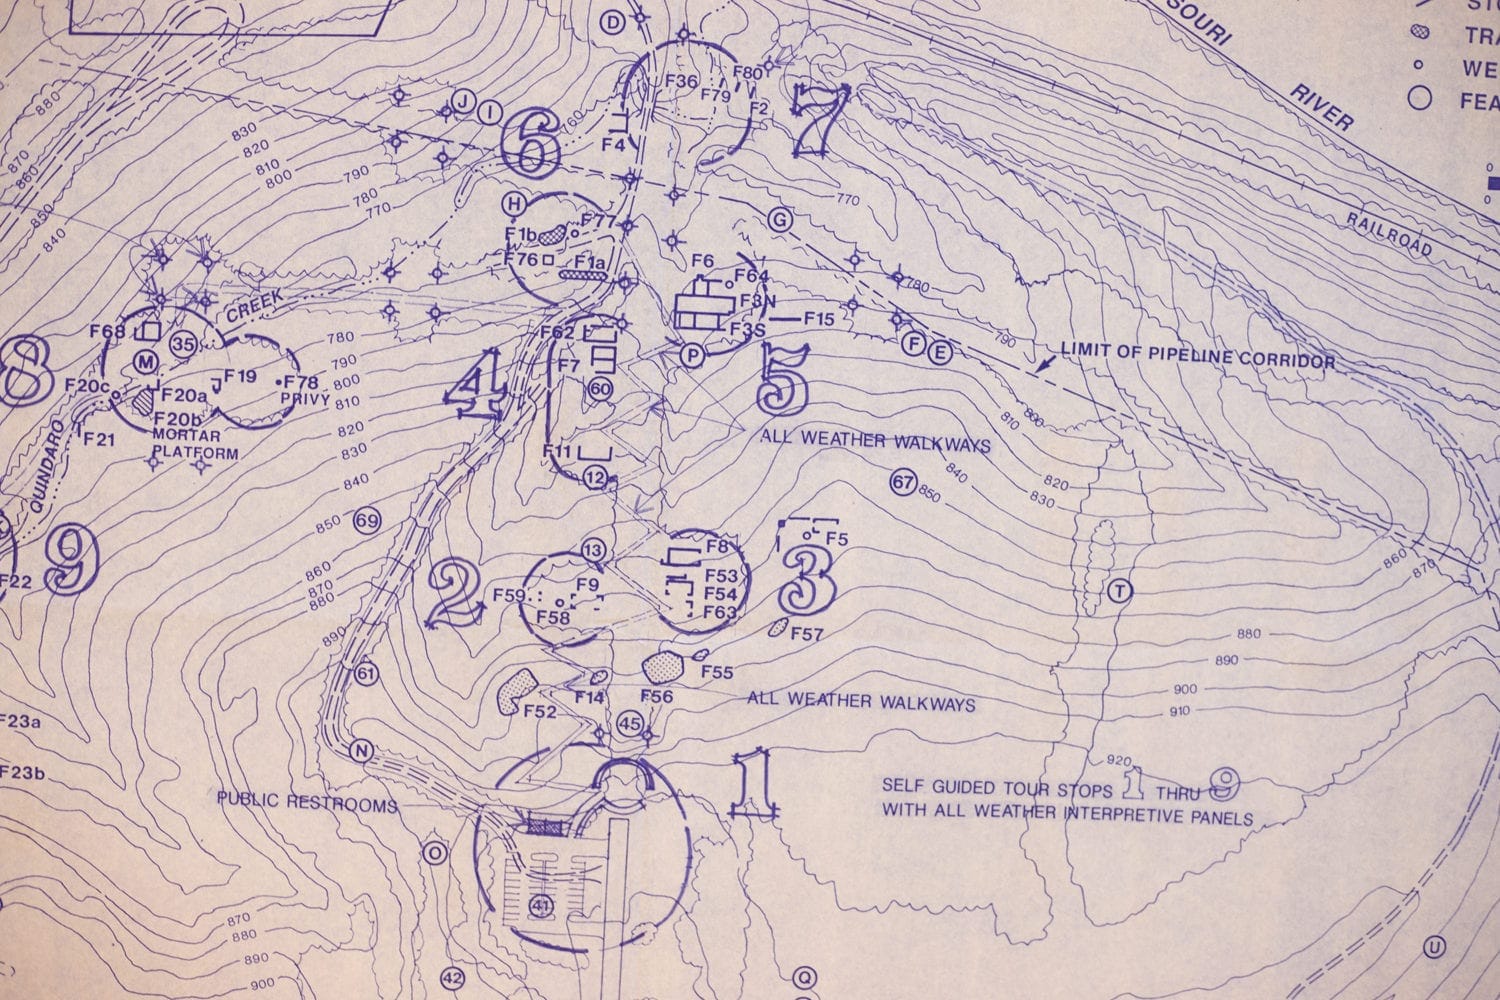 SOURI
RIVER
RAILROAD
TRA
WE
FEA
0
0
D
F36
F80
F79
F2
7
F4
J
I
6
760
880
870
860
850
840
830
820
810
800
790
780
770
770
H
F77
F1b
F76
F1a
G
F6
F64
F3N
F3S
F15
P
5
780
790
F
E
LIMIT OF PIPELINE CORRIDOR
CREEK
F68
35
M
8
F20c
F20a
F19
F78
PRIVY
F20b
MORTAR
PLATFORM
F21
QUINDARO
780
790
800
810
820
830
840
850
860
870
880
890
F62
F7
60
4
F11
12
ALL WEATHER WALKWAYS
800
810
820
830
840
850
67
860
870
69
9
F22
2
13
F59
F9
F58
F8
F53
F54
F63
3
F5
F57
T
880
890
900
910
920
61
F52
F14
F56
F55
45
ALL WEATHER WALKWAYS
N
F23a
F23b
PUBLIC RESTROOMS
1
SELF GUIDED TOUR STOPS 1 THRU 9
WITH ALL WEATHER INTERPRETIVE PANELS
O
41
42
Q
U
870
880
890
900